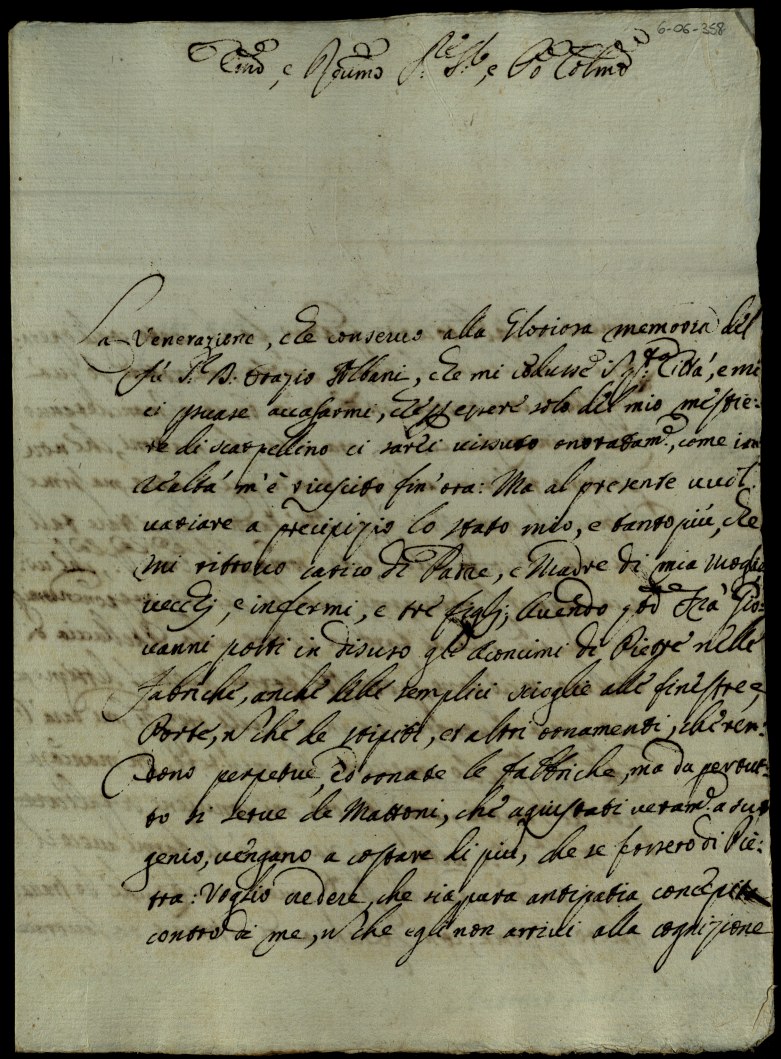 6-06-358
Em̃o, e Rev̄mo Sig.re Sig.re, e P̄ron Col̄mo
La Venerazione, che conservo alla Gloriosa memoria del
fù S.r D. Orazio Albani, che mi condusse Città, e mi
ci persuase accasarmi, che p essere solo del mio mestie:
re di scarpellino ci sarei vissuto onoratam.e, come in
realtà m'è riuscito fin'ora: Ma al presente vuol
variare a precipizio lo stato mio, e tanto più, che
mi ritrovo carico di Padre, e Madre di mia Moglie
vecchj, e infermi, e trè figlj; Avendo Frà Gio:
vanni posti in disuso gl'Aconcimi di Pietre nelle
Fabriche, anche delle semplici scioglie alle finestre, e
Porte, nō che de stipiti, et altri ornamenti, che ren:
dono perpetue, ed ornate le fabbriche, ma da pertut:
to si serve de Mattoni, che agiustati veram.e a suo
genio, vengano a costare di più, che se fossero di Piè:
tra: Voglio credere, che sia pura antipatia concepita
contro di me, nō che egli non arrivi alla cognizione